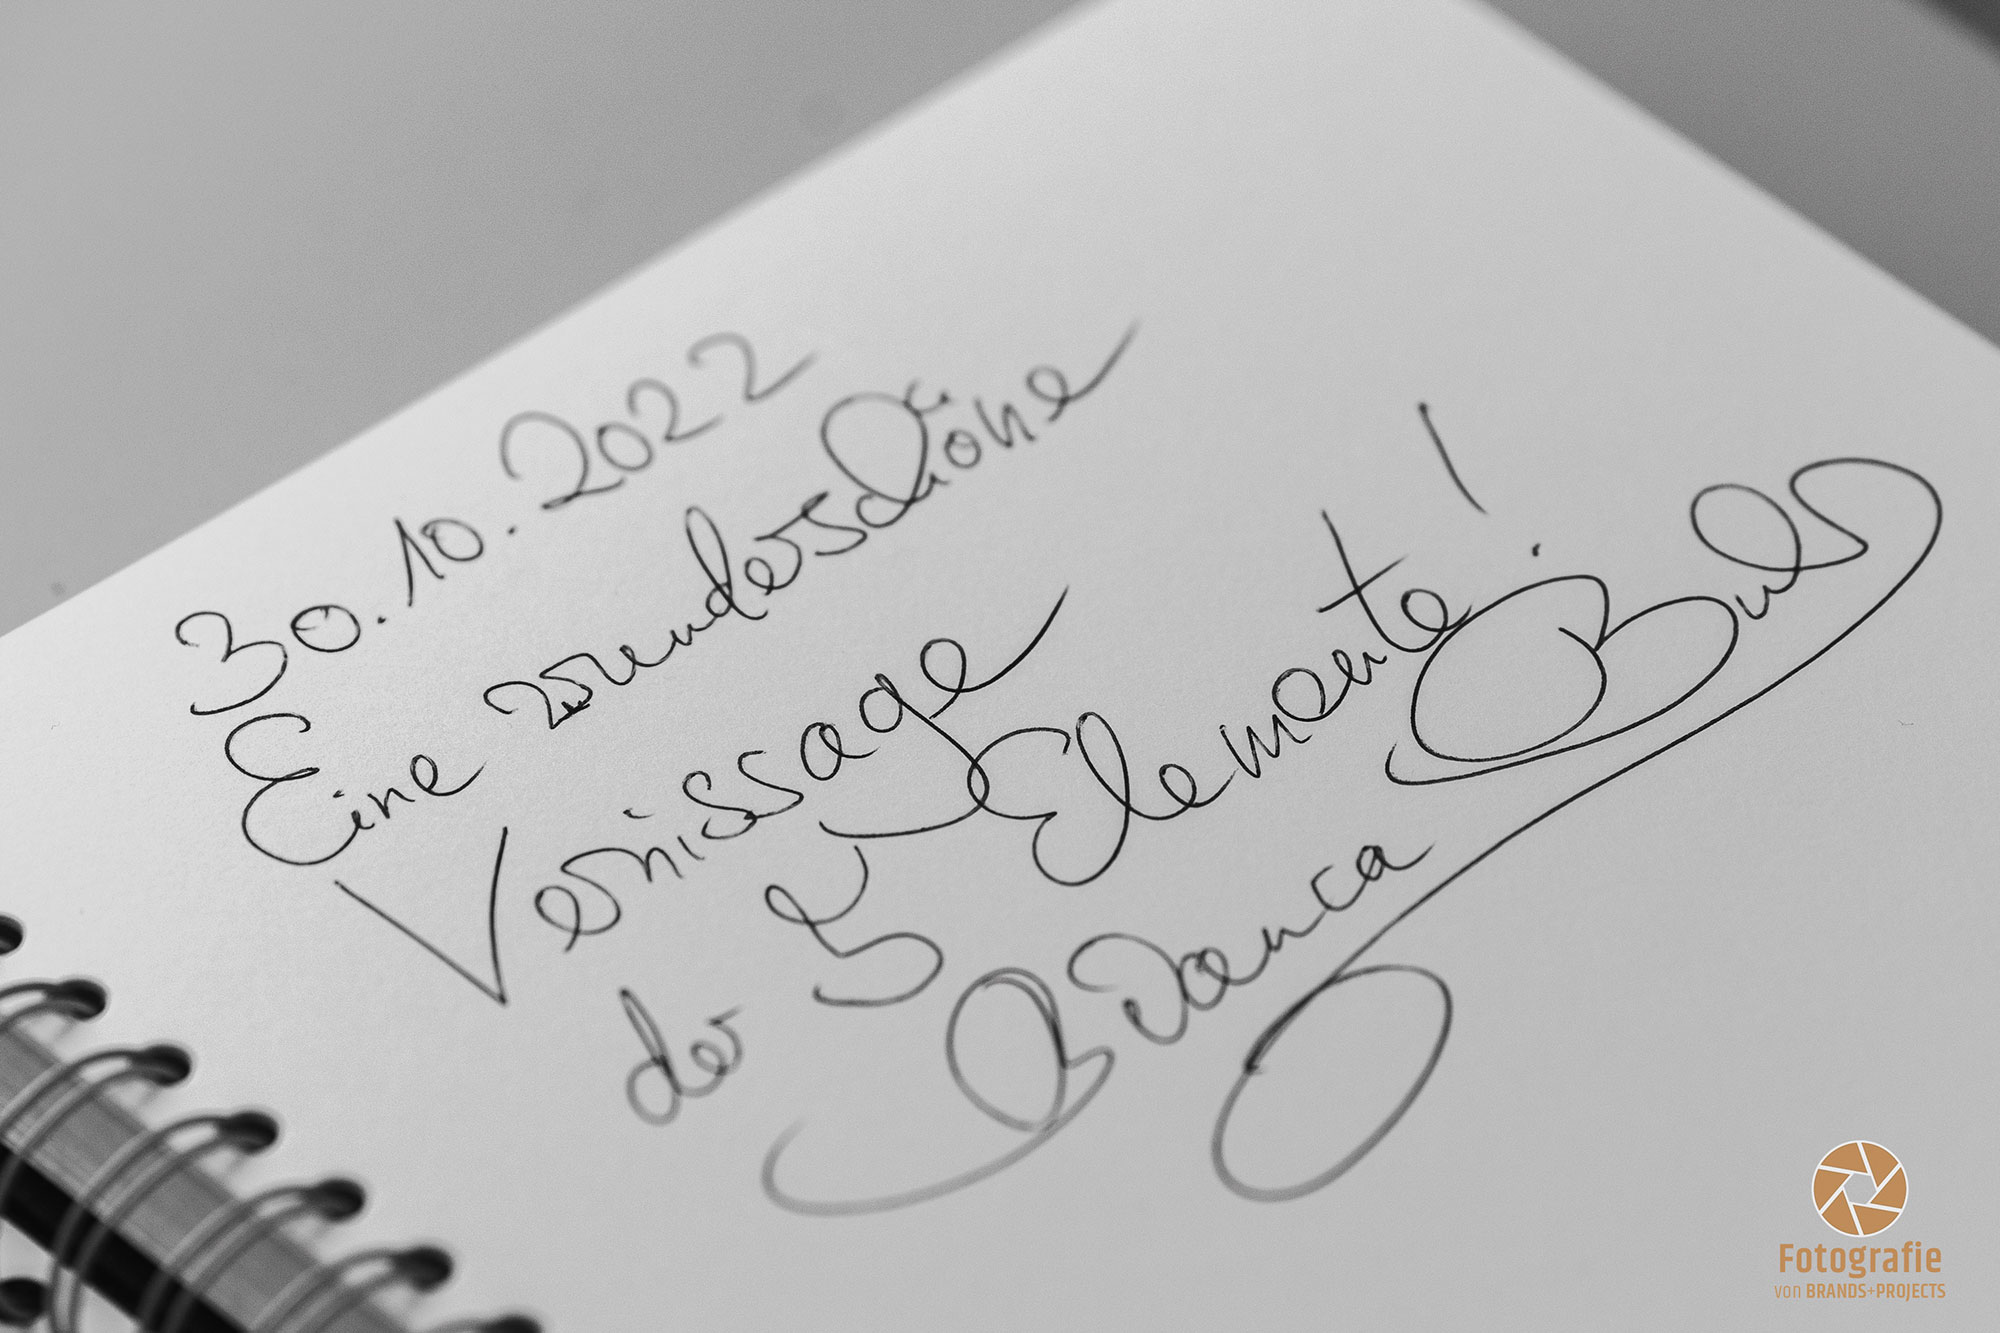 30.10.2022
Eine wunderschöne
Vernissage
der 5 Elemente!
Bianca
Fotografie
von BRANDS+PROJECTS